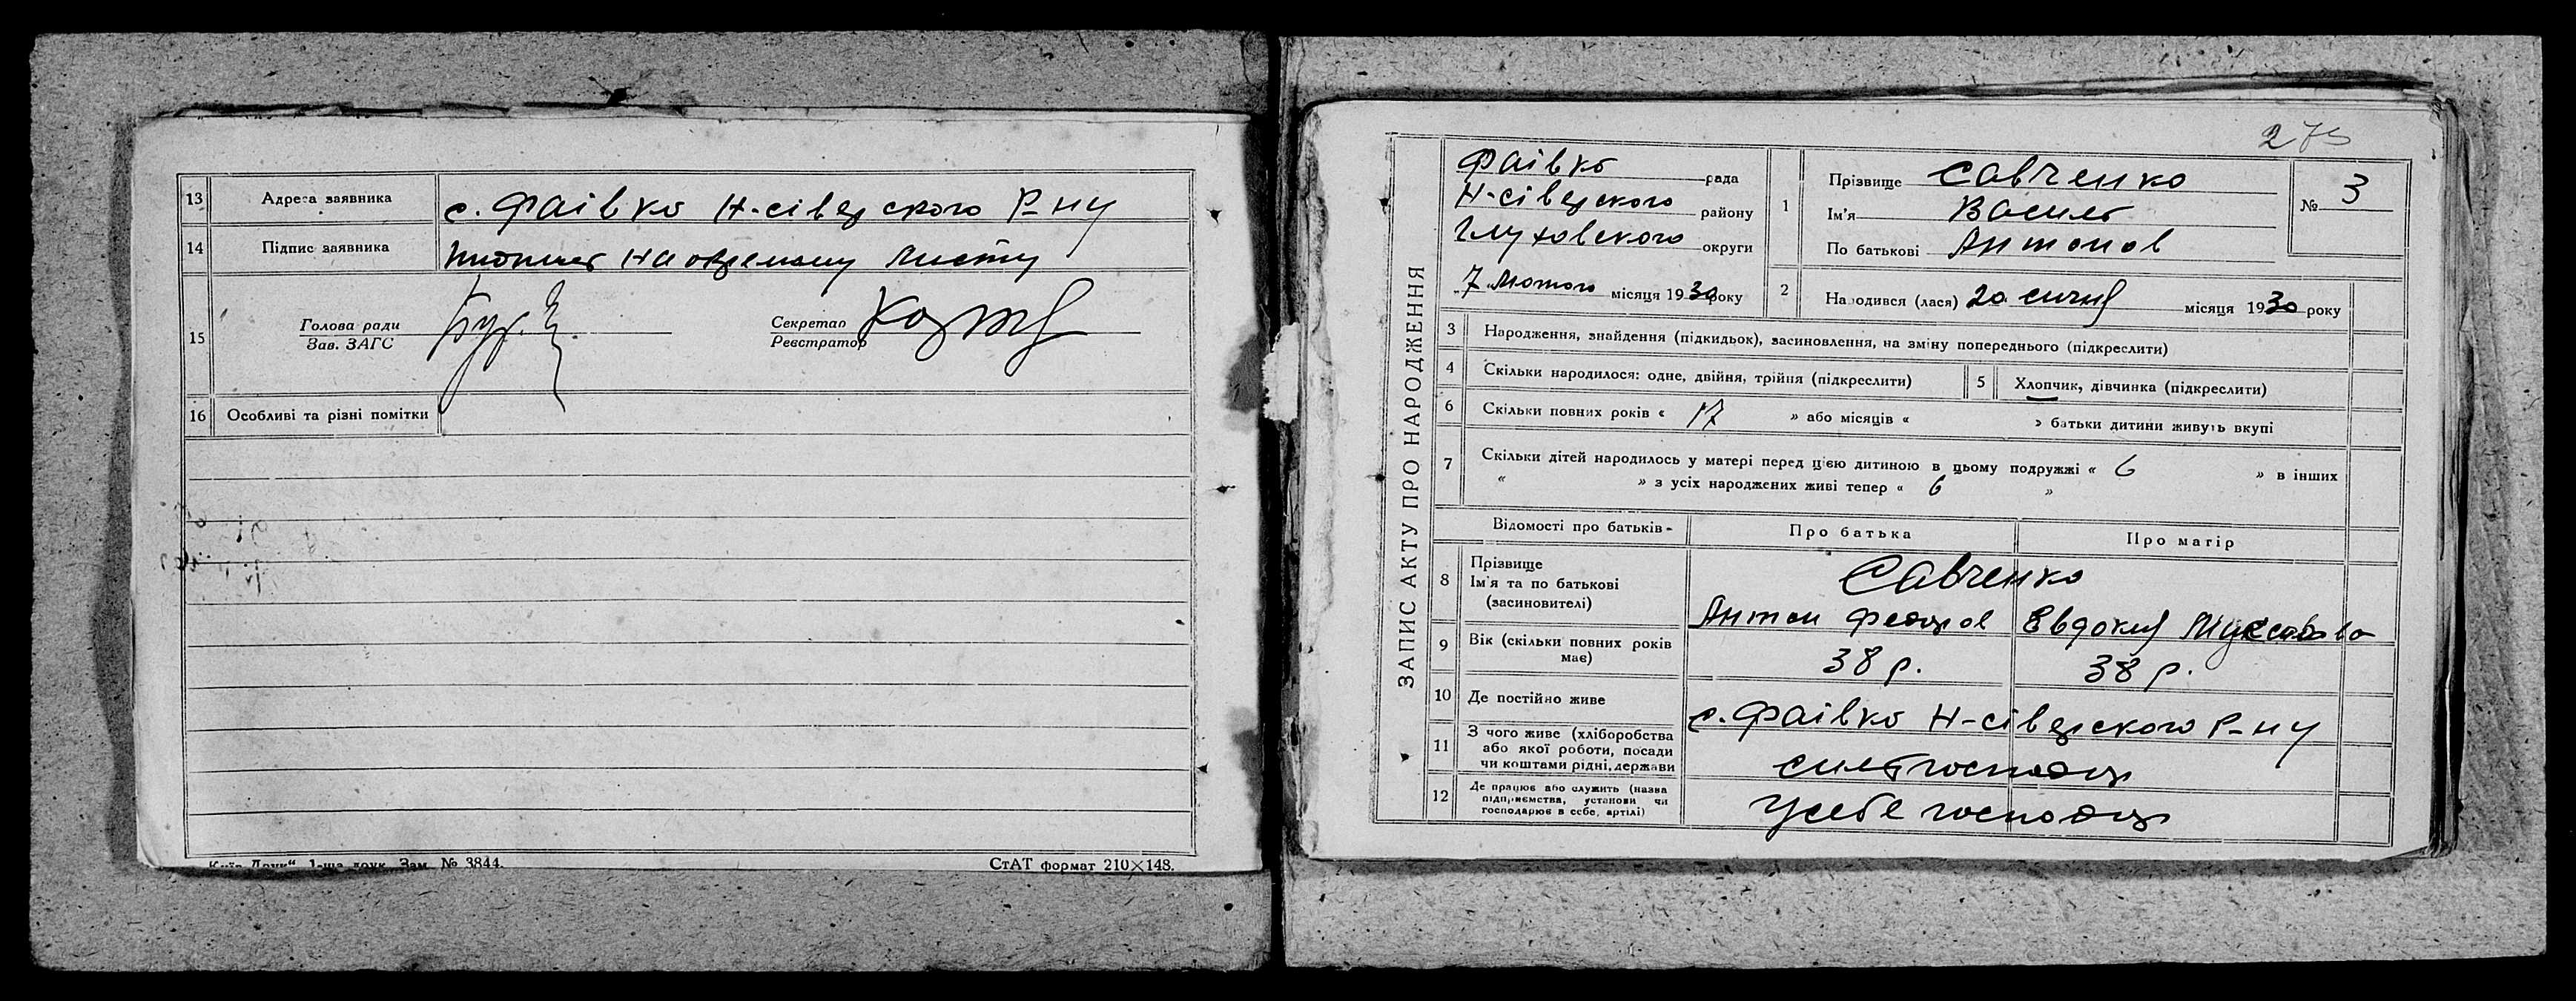 13 Адреса заявника с. Фаівка Н-сіверского Р-ну
14 Підпис заявника підпис на окремому листу
15 Голова ради
Зав. ЗАГС
Секретар
Реєстратор
16 Особливі та різні помітки
Київ-Друк“ 1-ша друк. Зам. № 3844.
СтАТ формат 210×148.
275
ЗАПИС АКТУ ПРО НАРОДЖЕННЯ
Фаівка рада
Н-сіверского району
Глуховского округи
7 Лютого місяця 1930 року
1 Прізвище Савченко
Ім'я Василь
По батькові Антонов
№ 3
2 Народився (лася) 20 січня місяця 1930 року
3 Народження, знайдення (підкидьок), засиновлення, на зміну попереднього (підкреслити)
4 Скільки народилося: одне, двійня, трійня (підкреслити)
5 Хлопчик, дівчинка (підкреслити)
6 Скільки повних років « 17 » або місяців « » батьки дитини живуть вкупі
7 Скільки дітей народилось у матері перед цією дитиною в цьому подружжі « 6 » в інших
« » з усіх народжених живі тепер « 6 »
Відомості про батьків Про батька Про матір
8 Прізвище
Ім'я та по батькові
(засиновителі)
Савченко
Антон Федоров Евдокия
9 Вік (скільки повних років
має)
38 р. 38 р.
10 Де постійно живе
с. Фаівка Н-сіверского Р-ну
11 З чого живе (хліборобства
або якої роботи, посади
чи коштами рідні, держави
сильгосподар
12 Де працює або служить (назва
підприємства, установи чи
господарює в себе, артілі)
У себе господар